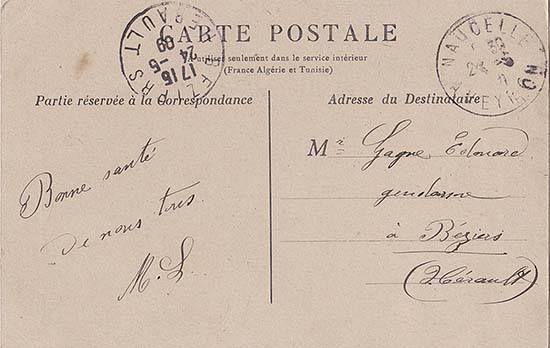 CARTE POSTALE
utilisée seulement dans le service intérieur
(France Algérie et Tunisie)
BEZIERS
HERAULT
17 15
24 -5
09
NAUCELLE
Partie réservée à la Correspondance
Adresse du Destinataire
Bonne santé
de nous tres
M. L.
Mr Gagne Edouard
gendarme
à Béziers
(Hérault)